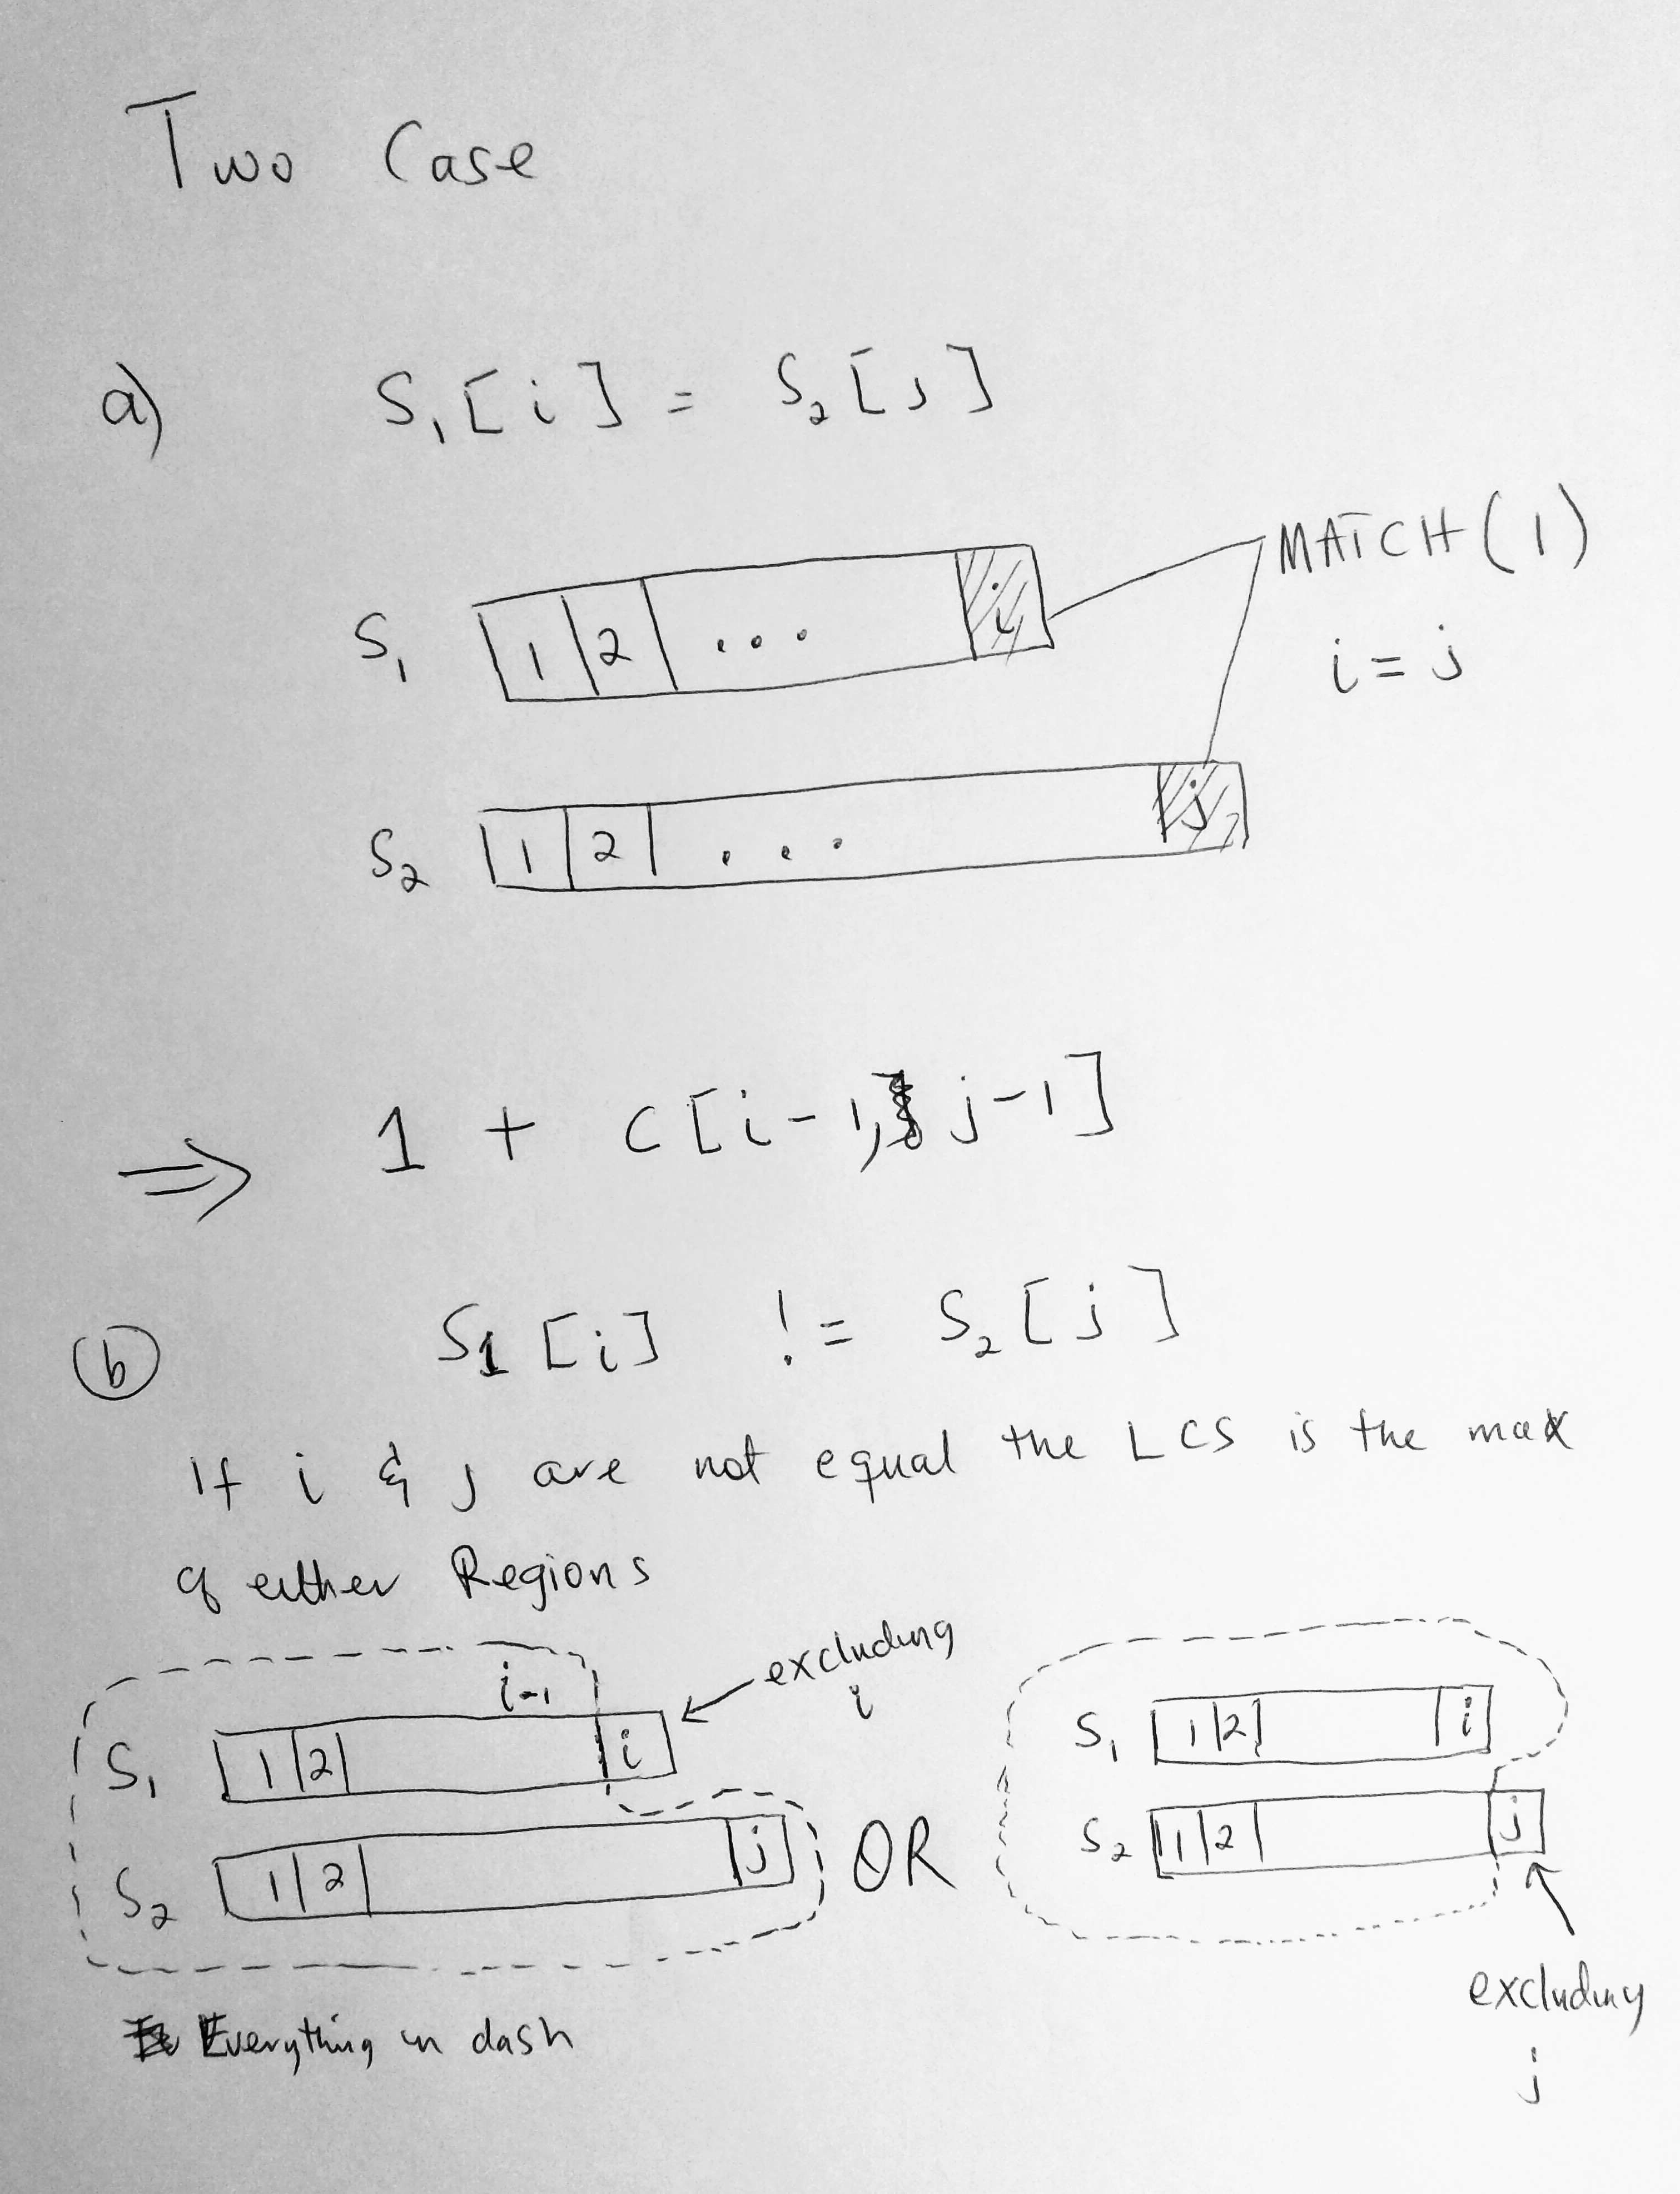 Two Case
a) S₁[i] = S₂[j]
MATCH(1)
S₁ 1 2 ... i
i = j
S₂ 1 2 ... j
⇒ 1 + C[i-1, j-1]
b S1[i] != S₂[j]
If i & j are not equal the LCS is the max
of either Regions
excluding
i
i-1
S₁ 1 2 i
S₂ 1 2 j
OR
S₁ 1 2 i
S₂ 1 2 j
excluding
j
Everything in dash